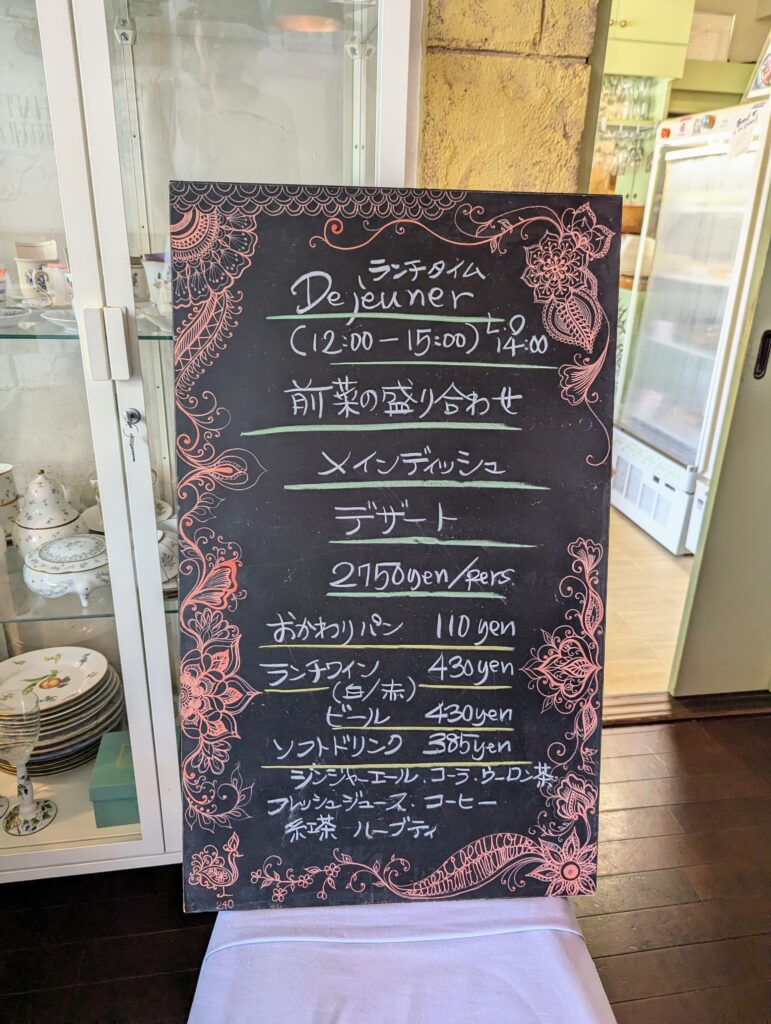 ランチタイム
Dejeuner
(12:00-15:00) L.O 14:00
前菜の盛り合わせ
メインディッシュ
デザート
2750yen/pers
おかわりパン 110yen
ランチワイン 430yen
(白/赤)
ビール 430yen
ソフトドリンク 385yen
ジンジャーエール、コーラ、ウーロン茶
フレッシュジュース、コーヒー
紅茶 ハーブティ